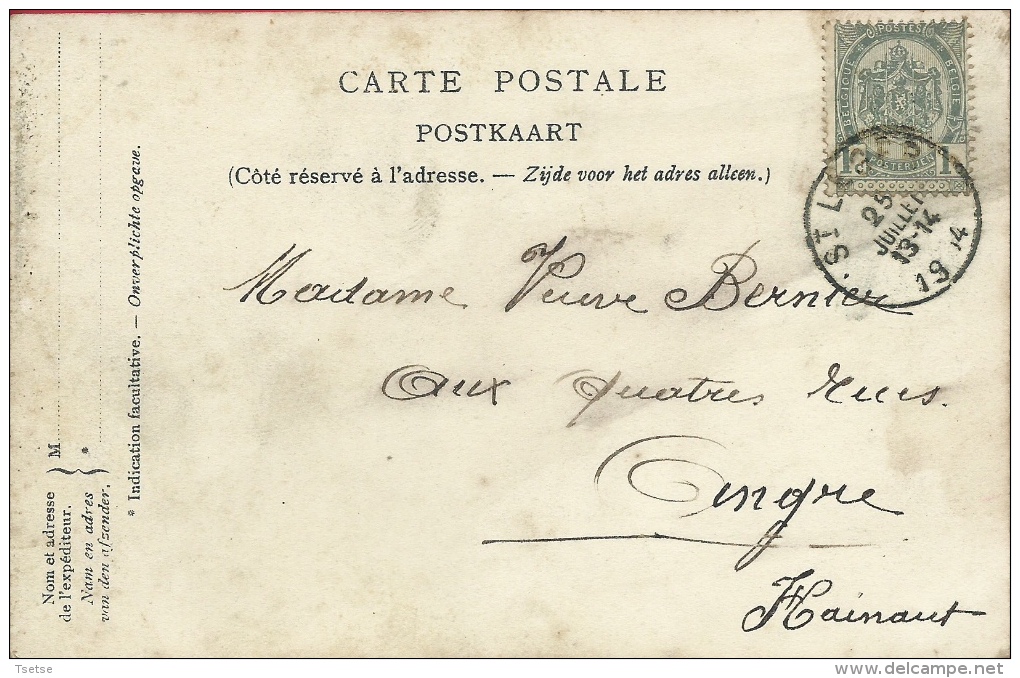 CARTE POSTALE
POSTKAART
(Côté réservé à l'adresse. — Zijde voor het adres alleen.)
POSTES
BELGIQUE BELGIE
1 POSTERIJEN 1
ST L
25
JUILLET
13-14
19 4
Madame Veuve Bernier
Aux quatres rues.
Angre
Hainaut
Nom et adresse
de l'expéditeur.
Nam en adres
van den afzender.
M
*
* Indication facultative. — Onverplichte opgave.
Tsetse
delcampe.net